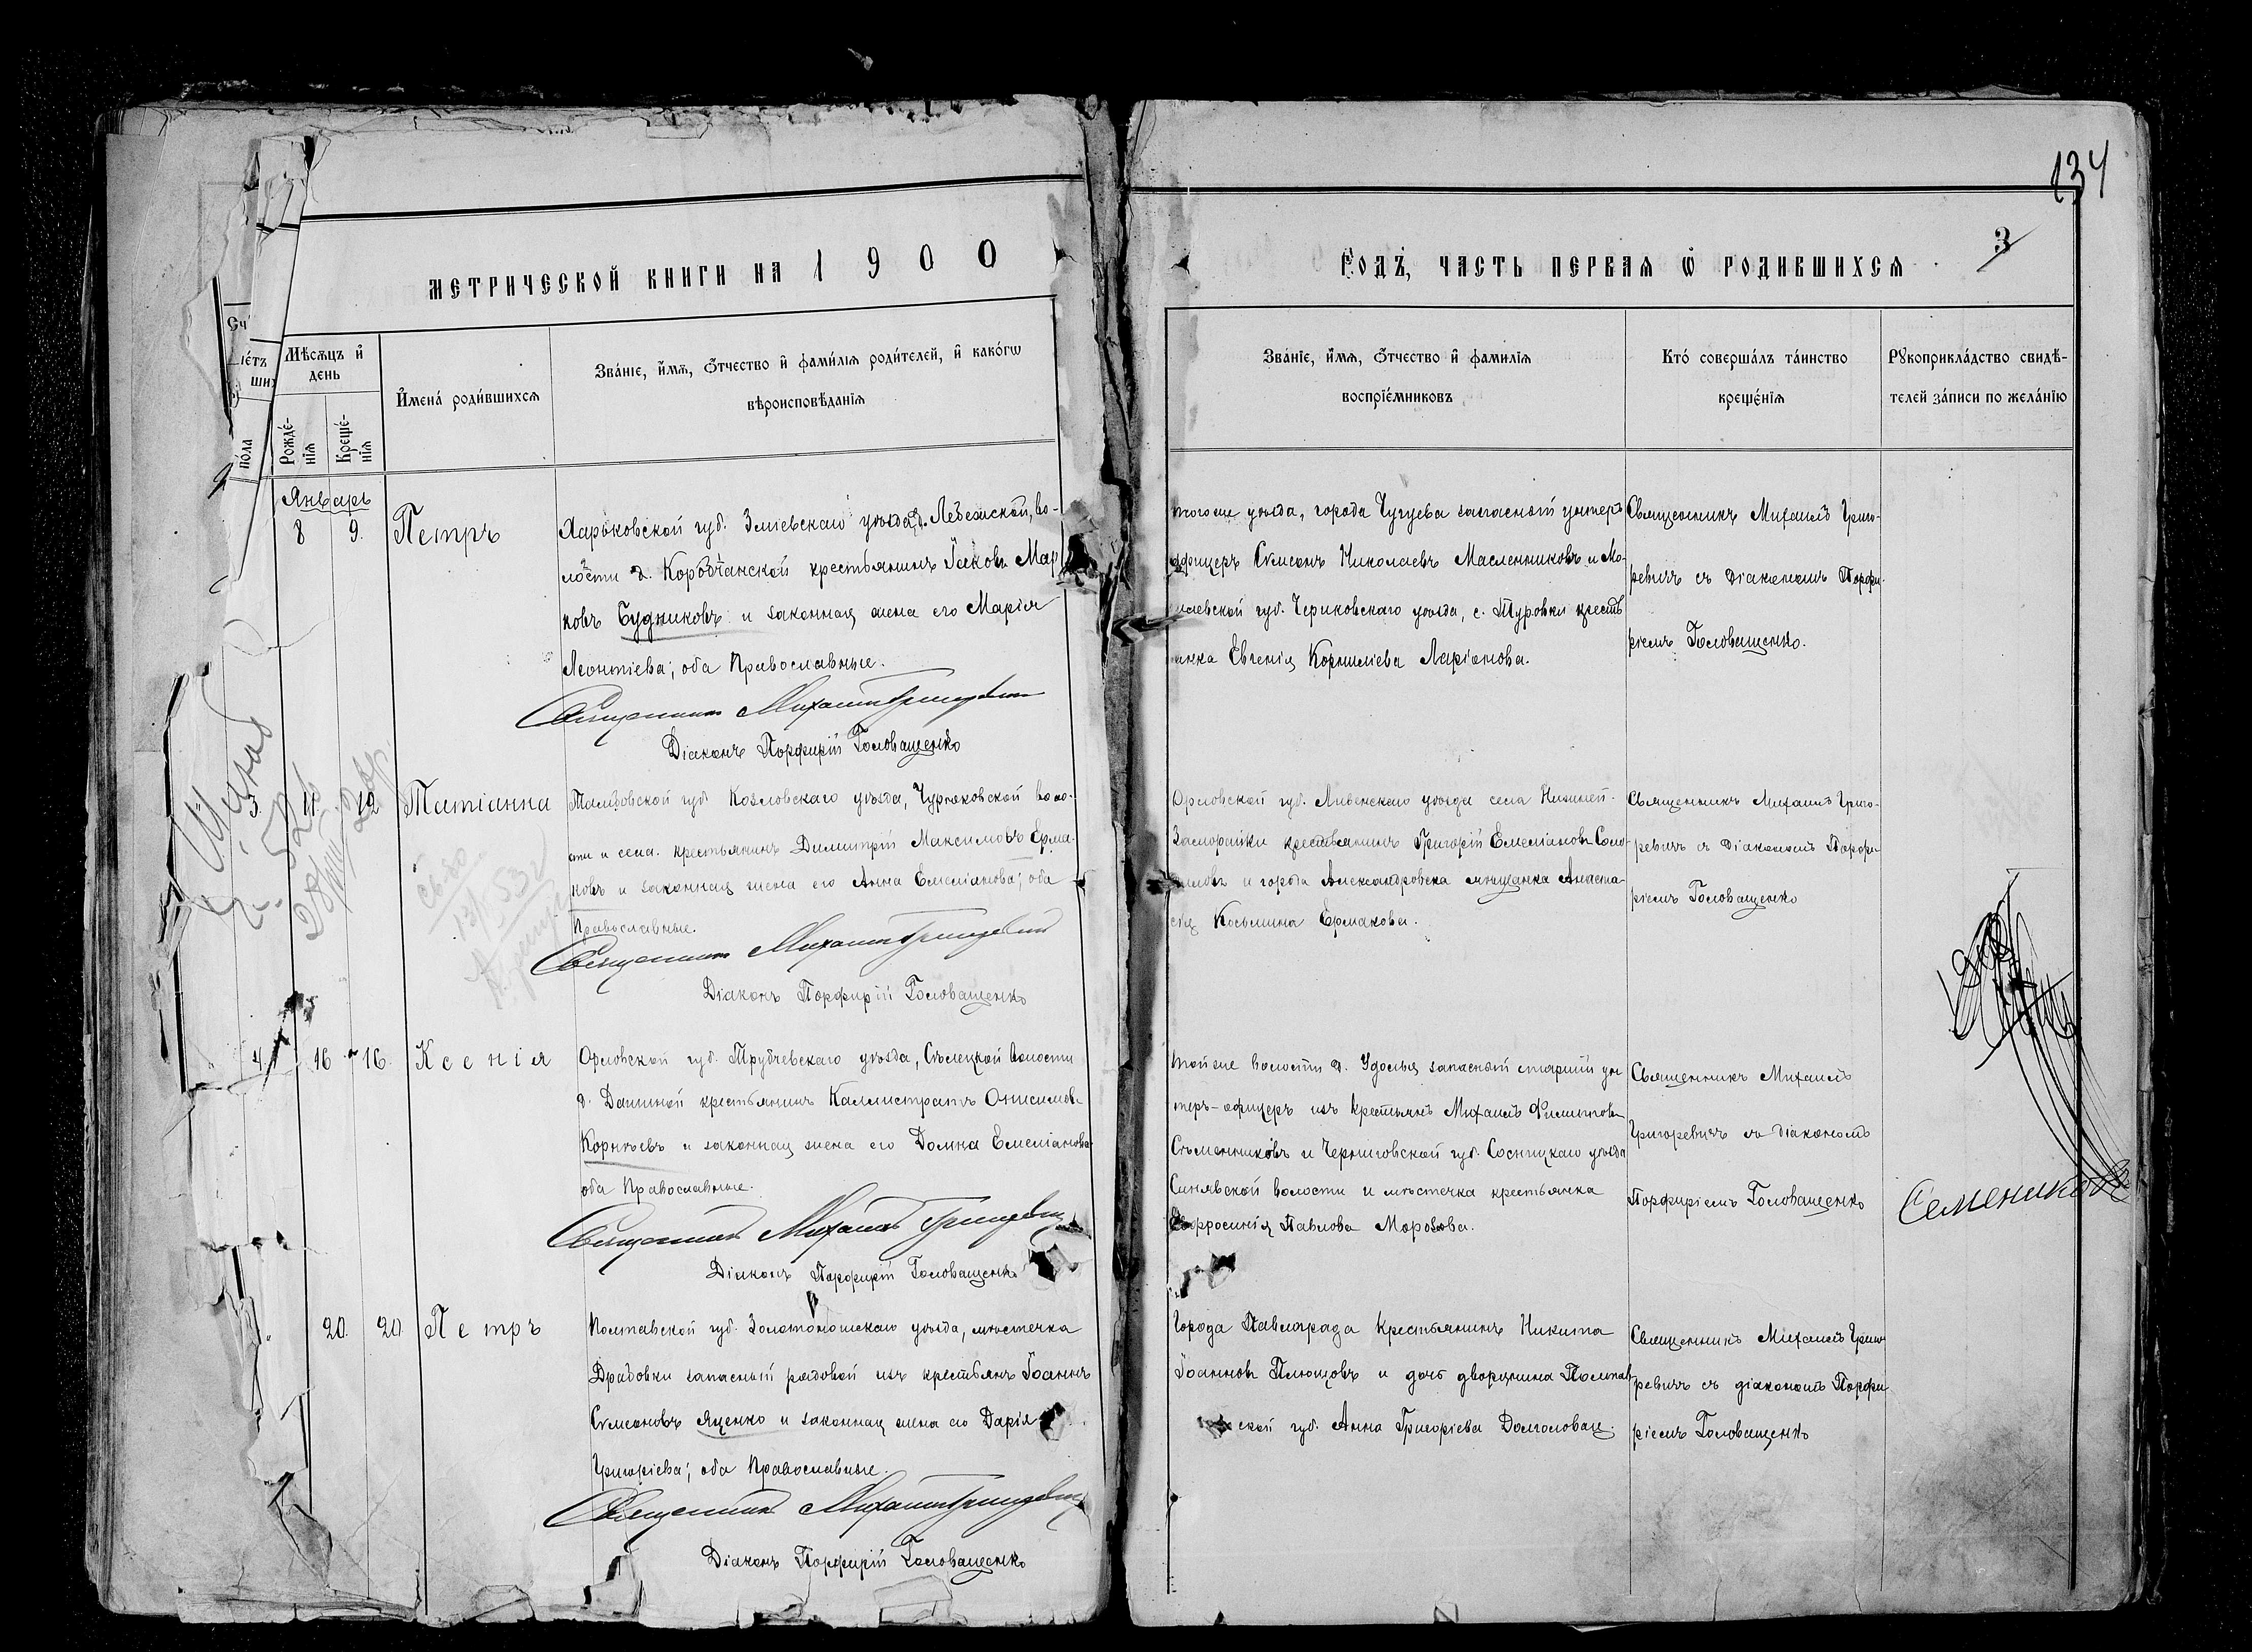 134
МЕТРИЧЕСКОЙ КНИГИ НА 1900
ГОДЪ, ЧАСТЬ ПЕРВАЯ Ѡ РОДИВШИХСЯ
3
Мѣсѧцъ и҆
день
Рожде́-
нїѧ
Креще́-
нїѧ
по́ла
И҆мена̀ роди́вшихсѧ
Зва́нїе, и҆́мѧ, ѻ҆́тчество и҆ фами́лїѧ роди́телей, и҆ како́гѡ
вѣроисповѣ́данїѧ
Зва́нїе, и҆́мѧ, ѻ҆́тчество и҆ фами́лїѧ
воспрїе́мниковъ
Кто̀ соверша́лъ та́инство
креще́нїѧ
Рꙋкоприкла́дство свидѣ́-
телей за́писи по жела́нїю
Январь
8 9. Петръ
Харьковской губ. Зміевскаго уѣзда, Лебежской, во-
лости д. Коробчанской крестьянинъ Іаковъ Мар
ковъ Будниковъ и законная жена его Марія
Леонтіева; оба Православные.
Священникъ Михаилъ Григоревичъ
Діаконъ Порфирій Головащенко
того же уѣзда, города Чугуева запасный унтеръ
офицеръ Сѵмеонъ Николаевъ Масленниковъ и Мо-
гилевской губ. Чериковскаго уѣзда, с. Туровки крестья
янка Евгенія Корниліева Ларіонова.
Священникъ Михаилъ Григо-
ревичъ съ діакономъ Порфи-
ріемъ Головащенко.
3. 11 12 Татіанна
Тамбовской губ. Козловскаго уѣзда, Чурюковской воло-
сти и села. крестьянинъ Димитрій Максимовъ Ерма-
ковъ и законная жена его Анна Емеліанова; оба
Православные.
Священникъ Михаилъ Григоревичъ
Діаконъ Порфирій Головащенко
Орловской губ. Ливенскаго уѣзда села Нижней-
крестьянинъ Григорій Емеліановъ
и города Александровска мѣщанка Анаста-
сія Косьмина Ермакова.
Священникъ Михаилъ Григо-
ревичъ съ діакономъ Порфи-
ріемъ Головащенко
4 16 16. Ксенія
Орловской губ. Трубчевскаго уѣзда, Сѣлецкой волости
д. Дашиной крестьянинъ Каллистратъ Онисимовъ
Корнѣевъ и законная жена его Домна Емеліанова
оба Православные.
Священникъ Михаилъ Григоревичъ
Діаконъ Порфирій Головащенко
той же волости д. Удолья запасный старшій ун
теръ-офицеръ изъ крестьянъ Михаилъ Филиповъ
Сѣменниковъ и Черниговской губ. Сосницкаго уѣзда
Синявской волости и мѣстечка крестьянка
Евфросинія Павлова Морозова.
Священникъ Михаилъ
Григоревичъ съ діакономъ
Порфиріемъ Головащенко
Семениковъ
20. 20 Петръ
Полтавской губ. Золотоношскаго уѣзда, мѣстечка
Драбовки запасный рядовой изъ крестьянъ Іоаннъ
Сѵмеоновъ Яценко и законная жена его Дарія
Григоріева; оба Православные.
Священникъ Михаилъ Григоревичъ
Діаконъ Порфирій Головащенко
Города Павлограда крестьянинъ Никита
Іоанновъ Плющовъ и дочь дворянина Полтав
ской губ. Анна Григоріева Долголовац.
Священникъ Михаилъ Григо
ревичъ съ діакономъ Порфи
ріемъ Головащенко